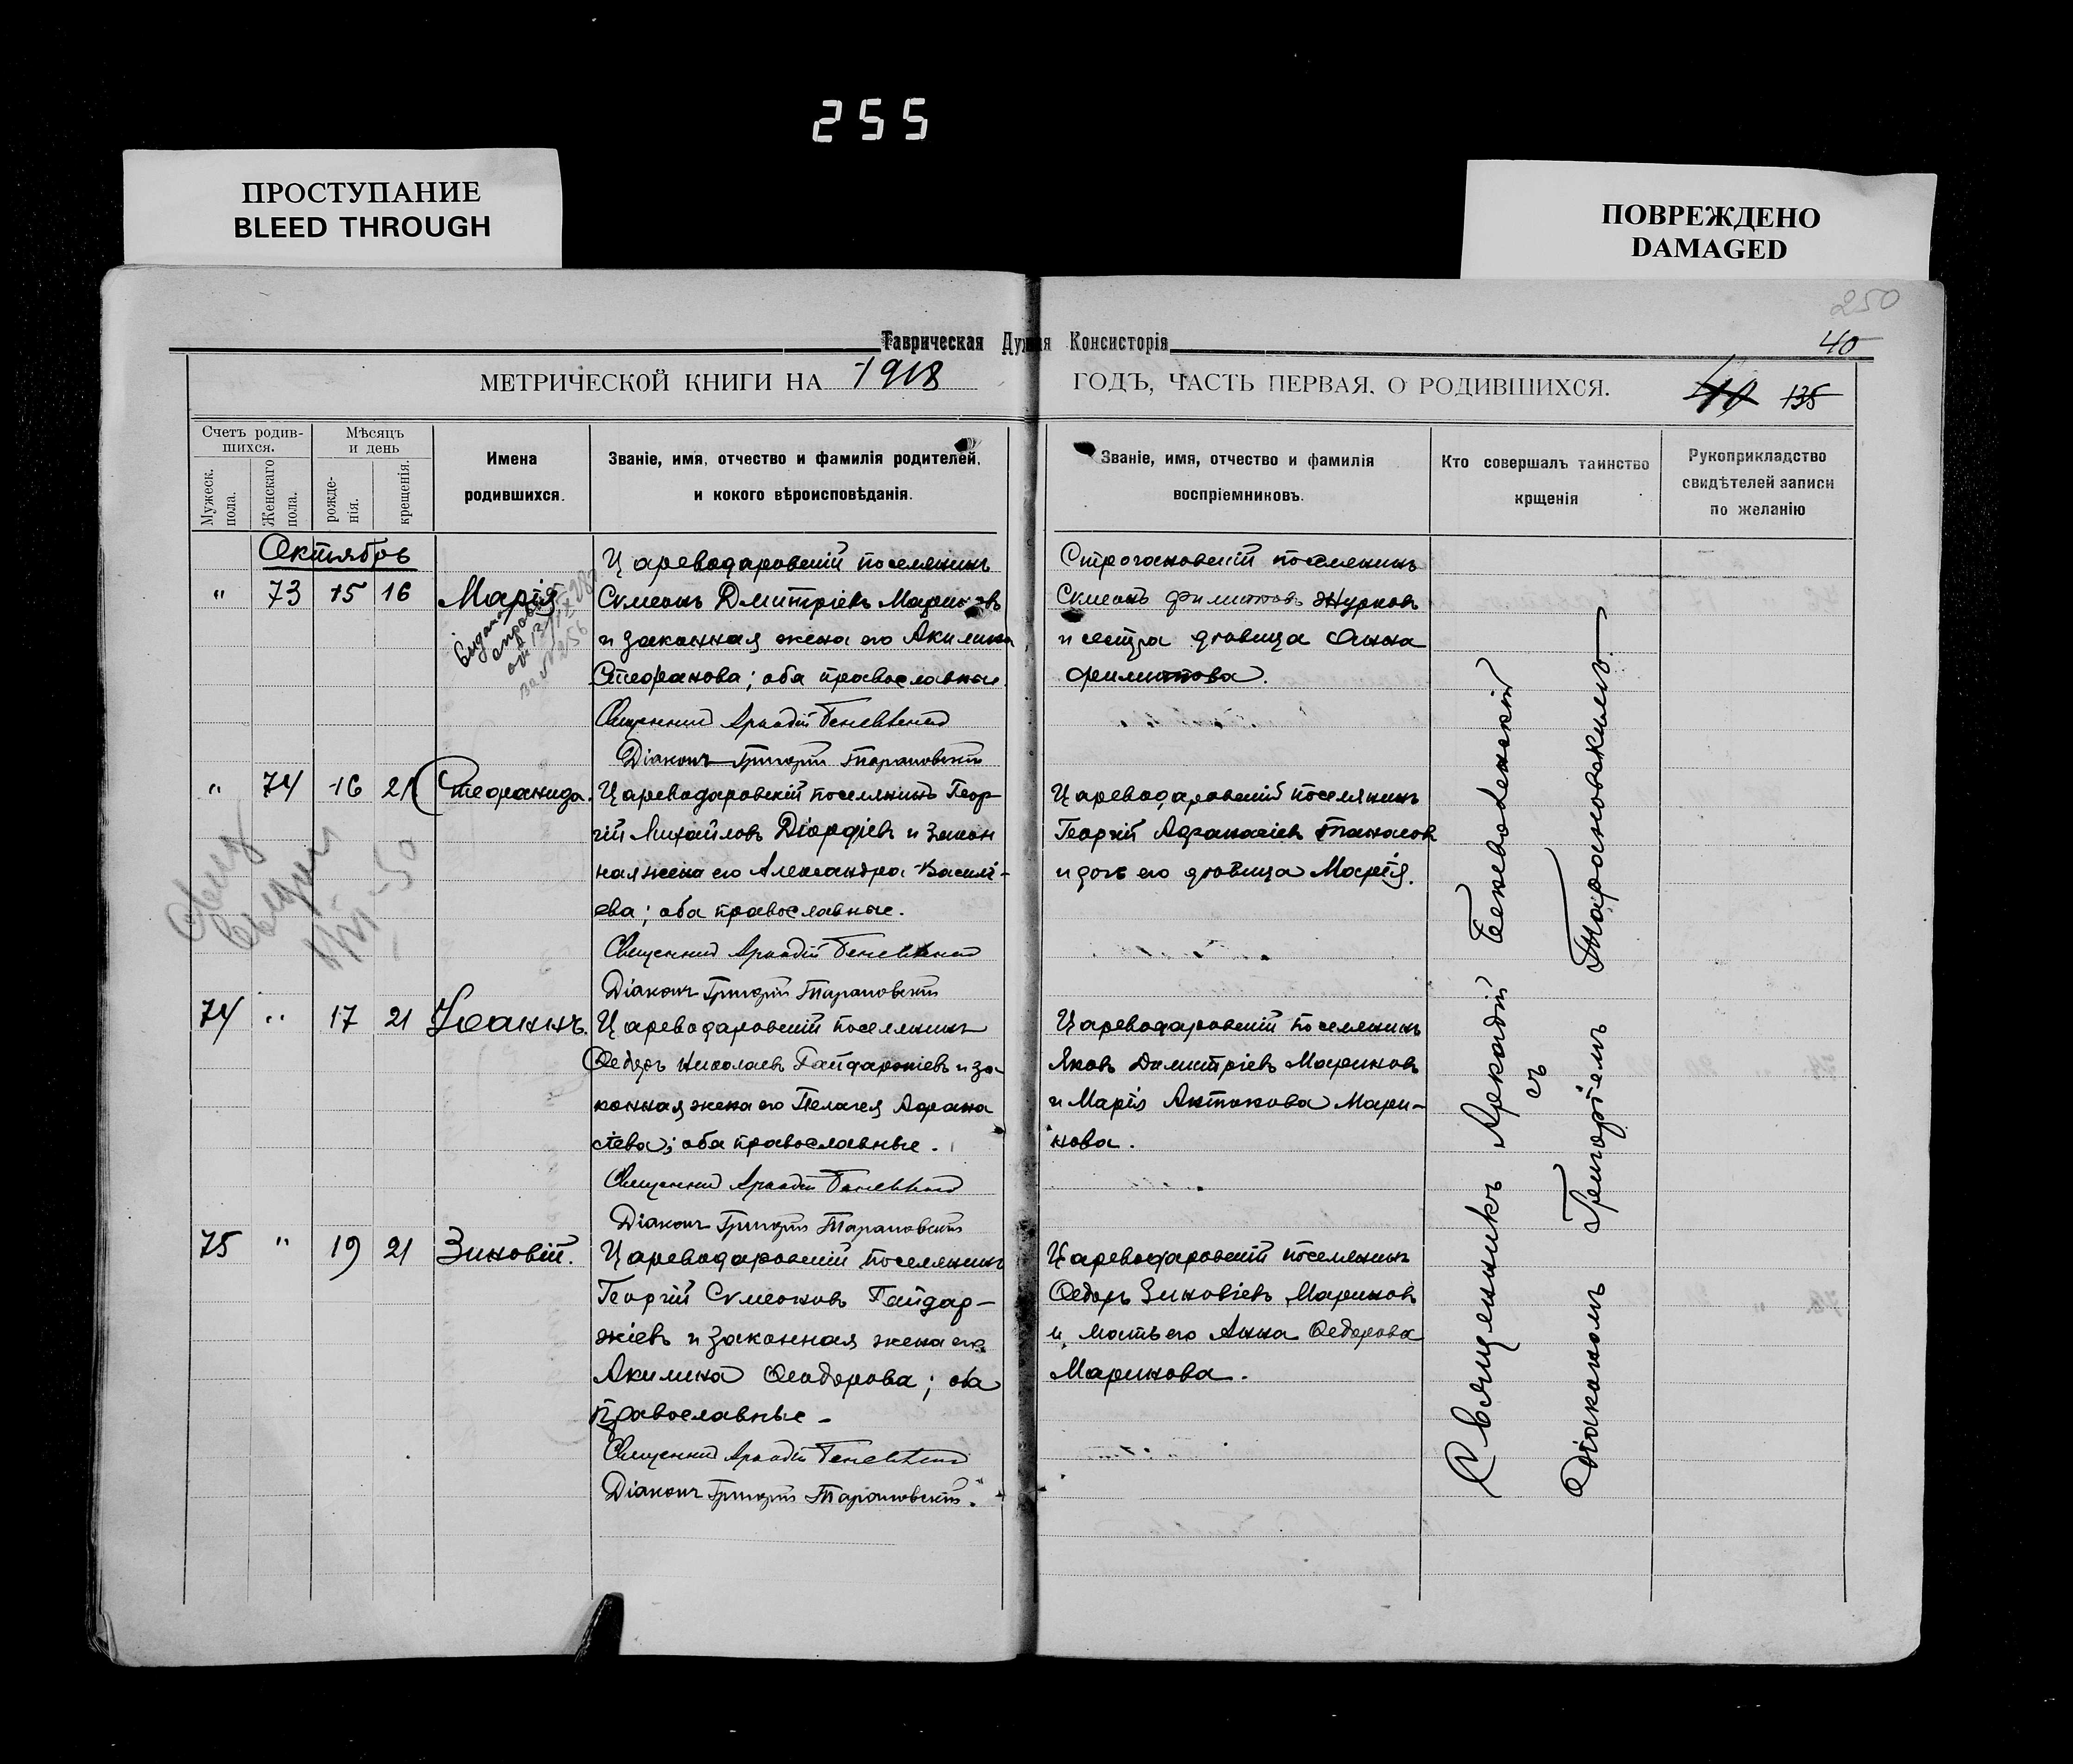 255
ПРОСТУПАНИЕ
BLEED THROUGH
ПОВРЕЖДЕНО
DAMAGED
250
Таврическая Дух я Консисторія
40
МЕТРИЧЕСКОЙ КНИГИ НА 1918 ГОДЪ, ЧАСТЬ ПЕРВАЯ. О РОДИВШИХСЯ.
135
Счетъ родив-
шихся.
Мужеск.
пола.
Женскаго
пола.
Мѣсяцъ
и день
рожде-
нія.
крещенія.
Имена
родившихся.
Званіе, имя, отчество и фамилія родителей,
и кокого вѣроисповѣданія.
Званіе, имя, отчество и фамилія
воспріемниковъ.
Кто совершалъ таинство
крщенія
Рукоприкладство
свидѣтелей записи
по желанію
Октябрь
" 73 15 16 Марія
Цареводаровскій поселянинъ
Сумеонъ Дмитріевъ Мариновъ
и законная жена его Акилина
Стефанова; оба православные.
Священник Аркадій Беневоленский
Діаконъ Григорій Тарановскій
Строгановскій поселянинъ
Сумеонъ Филиповъ Журковъ
и сестра девица Анна
Филиппова.
" 74 16 21 Стефанида.
Цареводаровскій поселянинъ Геор-
гій Михайловъ Діордіевъ и закон
ная жена его Александра Василі-
ева; оба православные.
Священник Аркадій Беневоленский
Діаконъ Григорій Тарановскій
Цареводаровскій поселянинъ
Георгій Афанасіевъ Танасов
и дочь его девица Марія.
74 " 17 21 Іоаннъ.
Цареводаровскій поселянинъ
Ѳедоръ Николаевъ Гайдаржіевъ и за-
конная жена его Пелагея Афана
сіева; оба православные.
Священник Аркадій Беневоленский
Діаконъ Григорій Тарановскій
Цареводаровскій поселянинъ
Яковъ Димитріевъ Мариновъ
и Марія Антонова Мари-
нова.
75 " 19 21 Зиновій.
Цареводаровскій поселянинъ
Георгій Сумеоновъ Гайдар-
жіевъ и законная жена его
Акилина Ѳеодорова; оба
православные -
Священник Аркадій Беневоленский
Діаконъ Григорій Тарановскій.
Цареводаровскій поселянинъ
Ѳедоръ Зиновіевъ Мариновъ
и мать его Анна Ѳедорова
Маринова.
Священникъ Аркадій Беневоленскій
съ
Діакономъ Григоріемъ Тарановскимъ